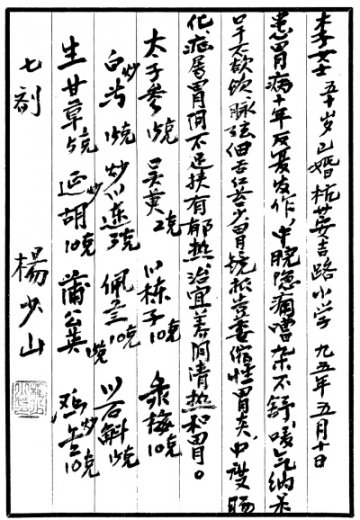 李女士 五十岁 已婚 杭 安吉路小学 九五年五月十日
患胃病十年反复发作,中脘隐痛嘈杂不舒,嗳气纳呆
口干不欲饮,脉弦细舌红苔少胃镜报告萎缩性胃炎,中度肠
化症属胃阴不足挟有郁热,治宜养阴清热和胃。
太子参15克 吴萸2克 川楝子10克 乌梅10克
炒白芍15克 炒川连3克 佩兰10克 川石斛15克
生甘草5克 炒延胡10克 蒲公英15克 炒鸡金10克
七剂 杨少山